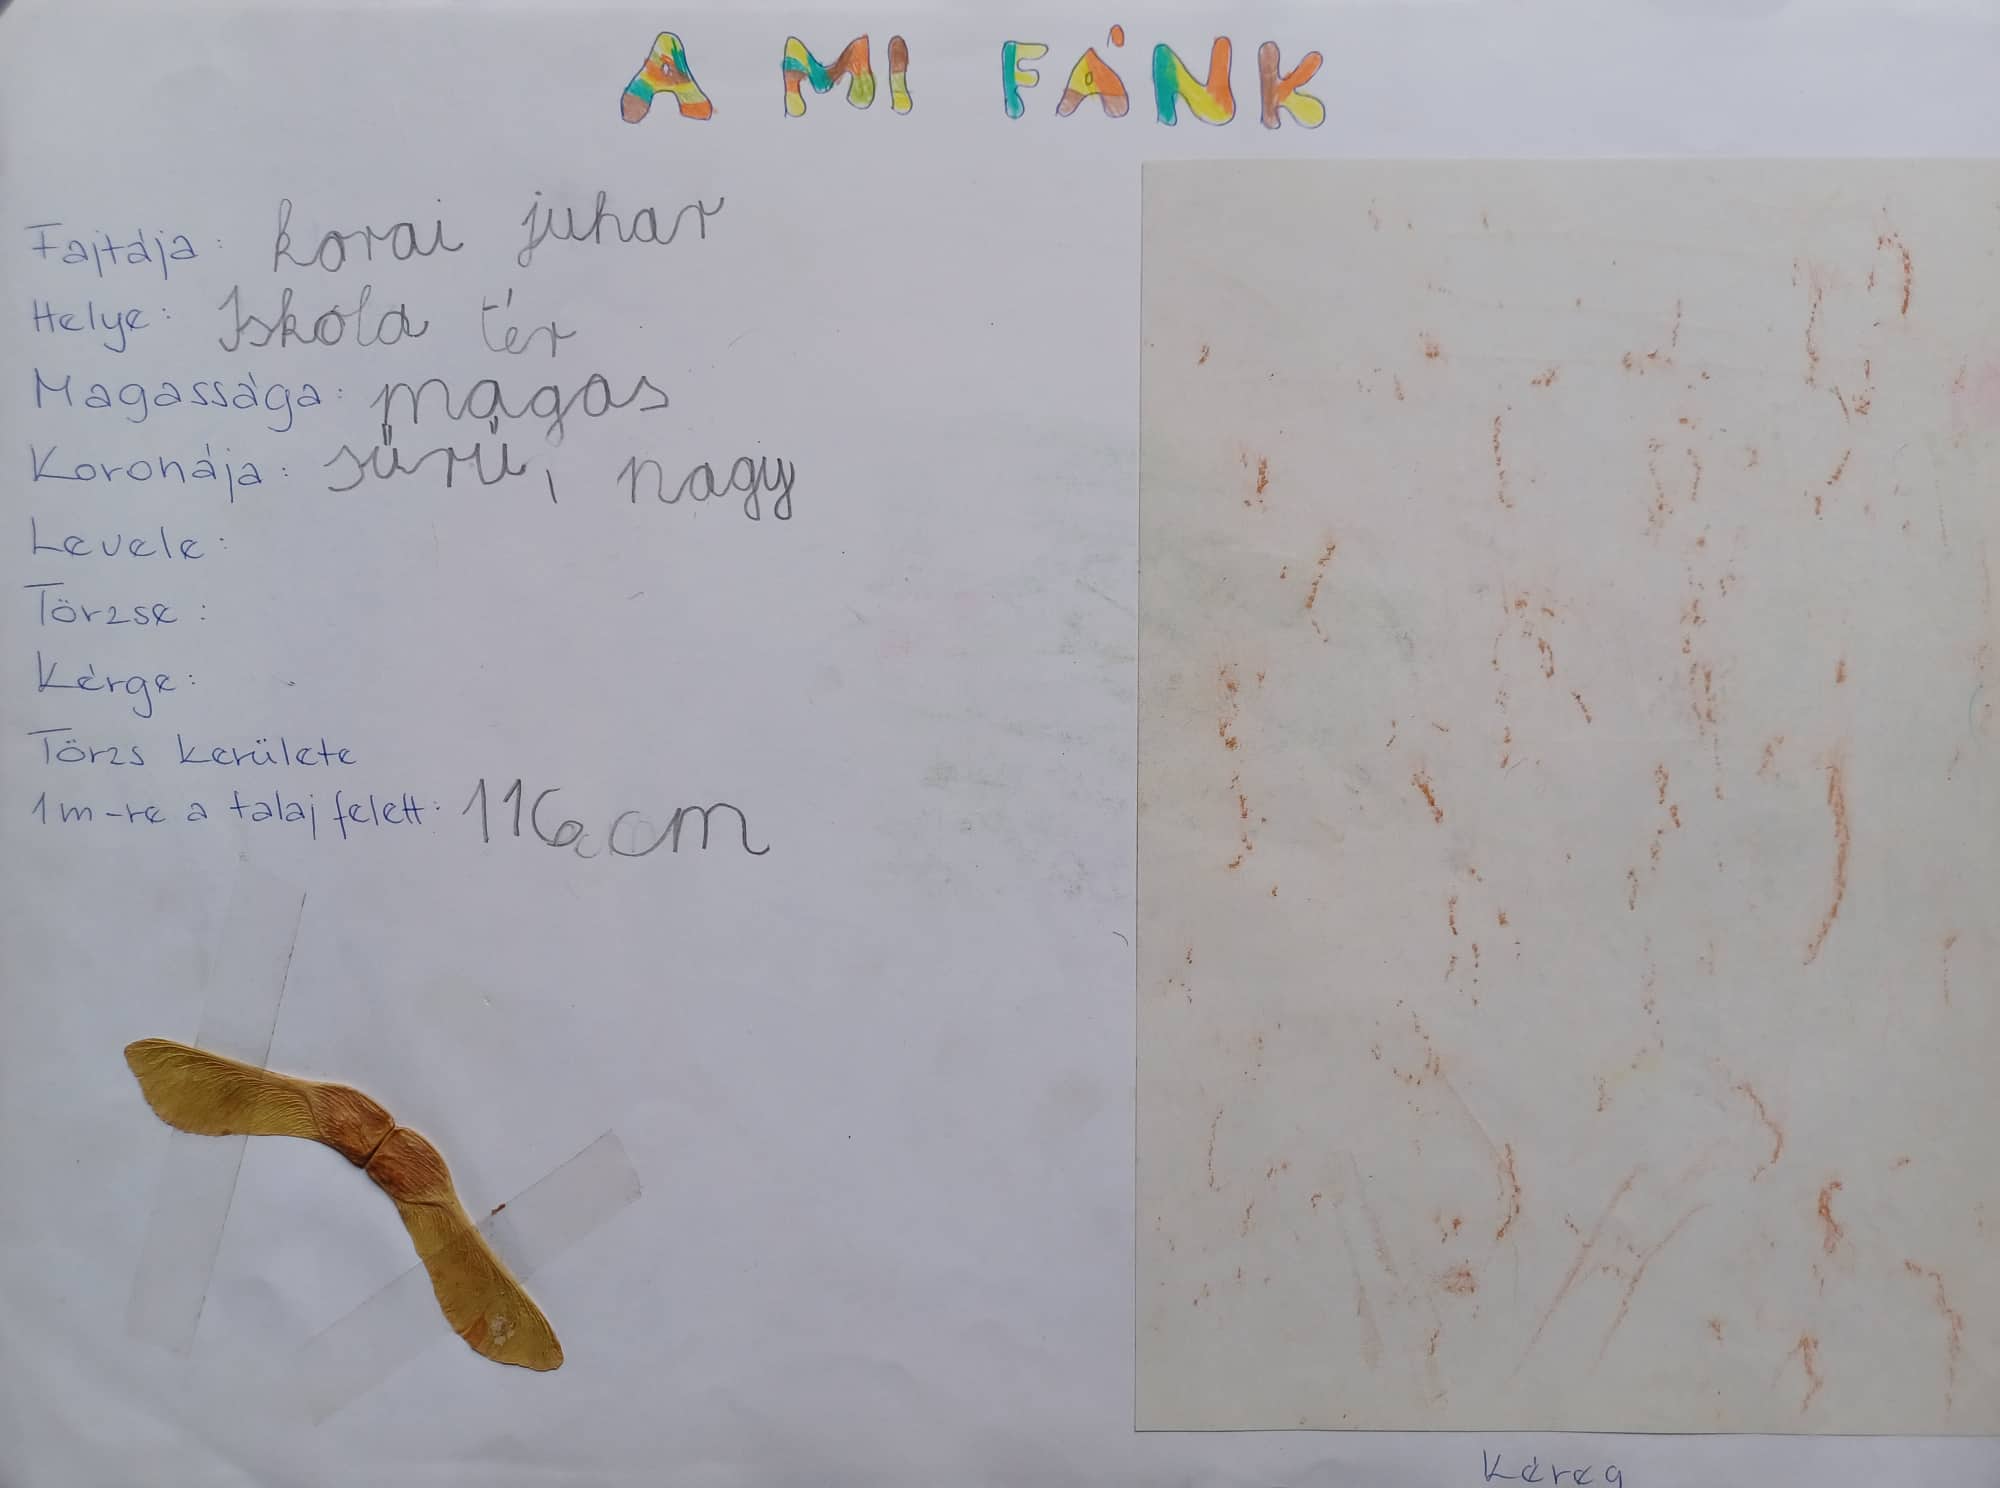 A MI FÁNK
Fajtája: korai juhar
Helye: Iskola tér
Magassága: magas
Koronája: sűrű, nagy
Levele:
Törzse:
Kérge:
Törzs kerülete
1m-re a talaj felett: 116 cm
Kéreg